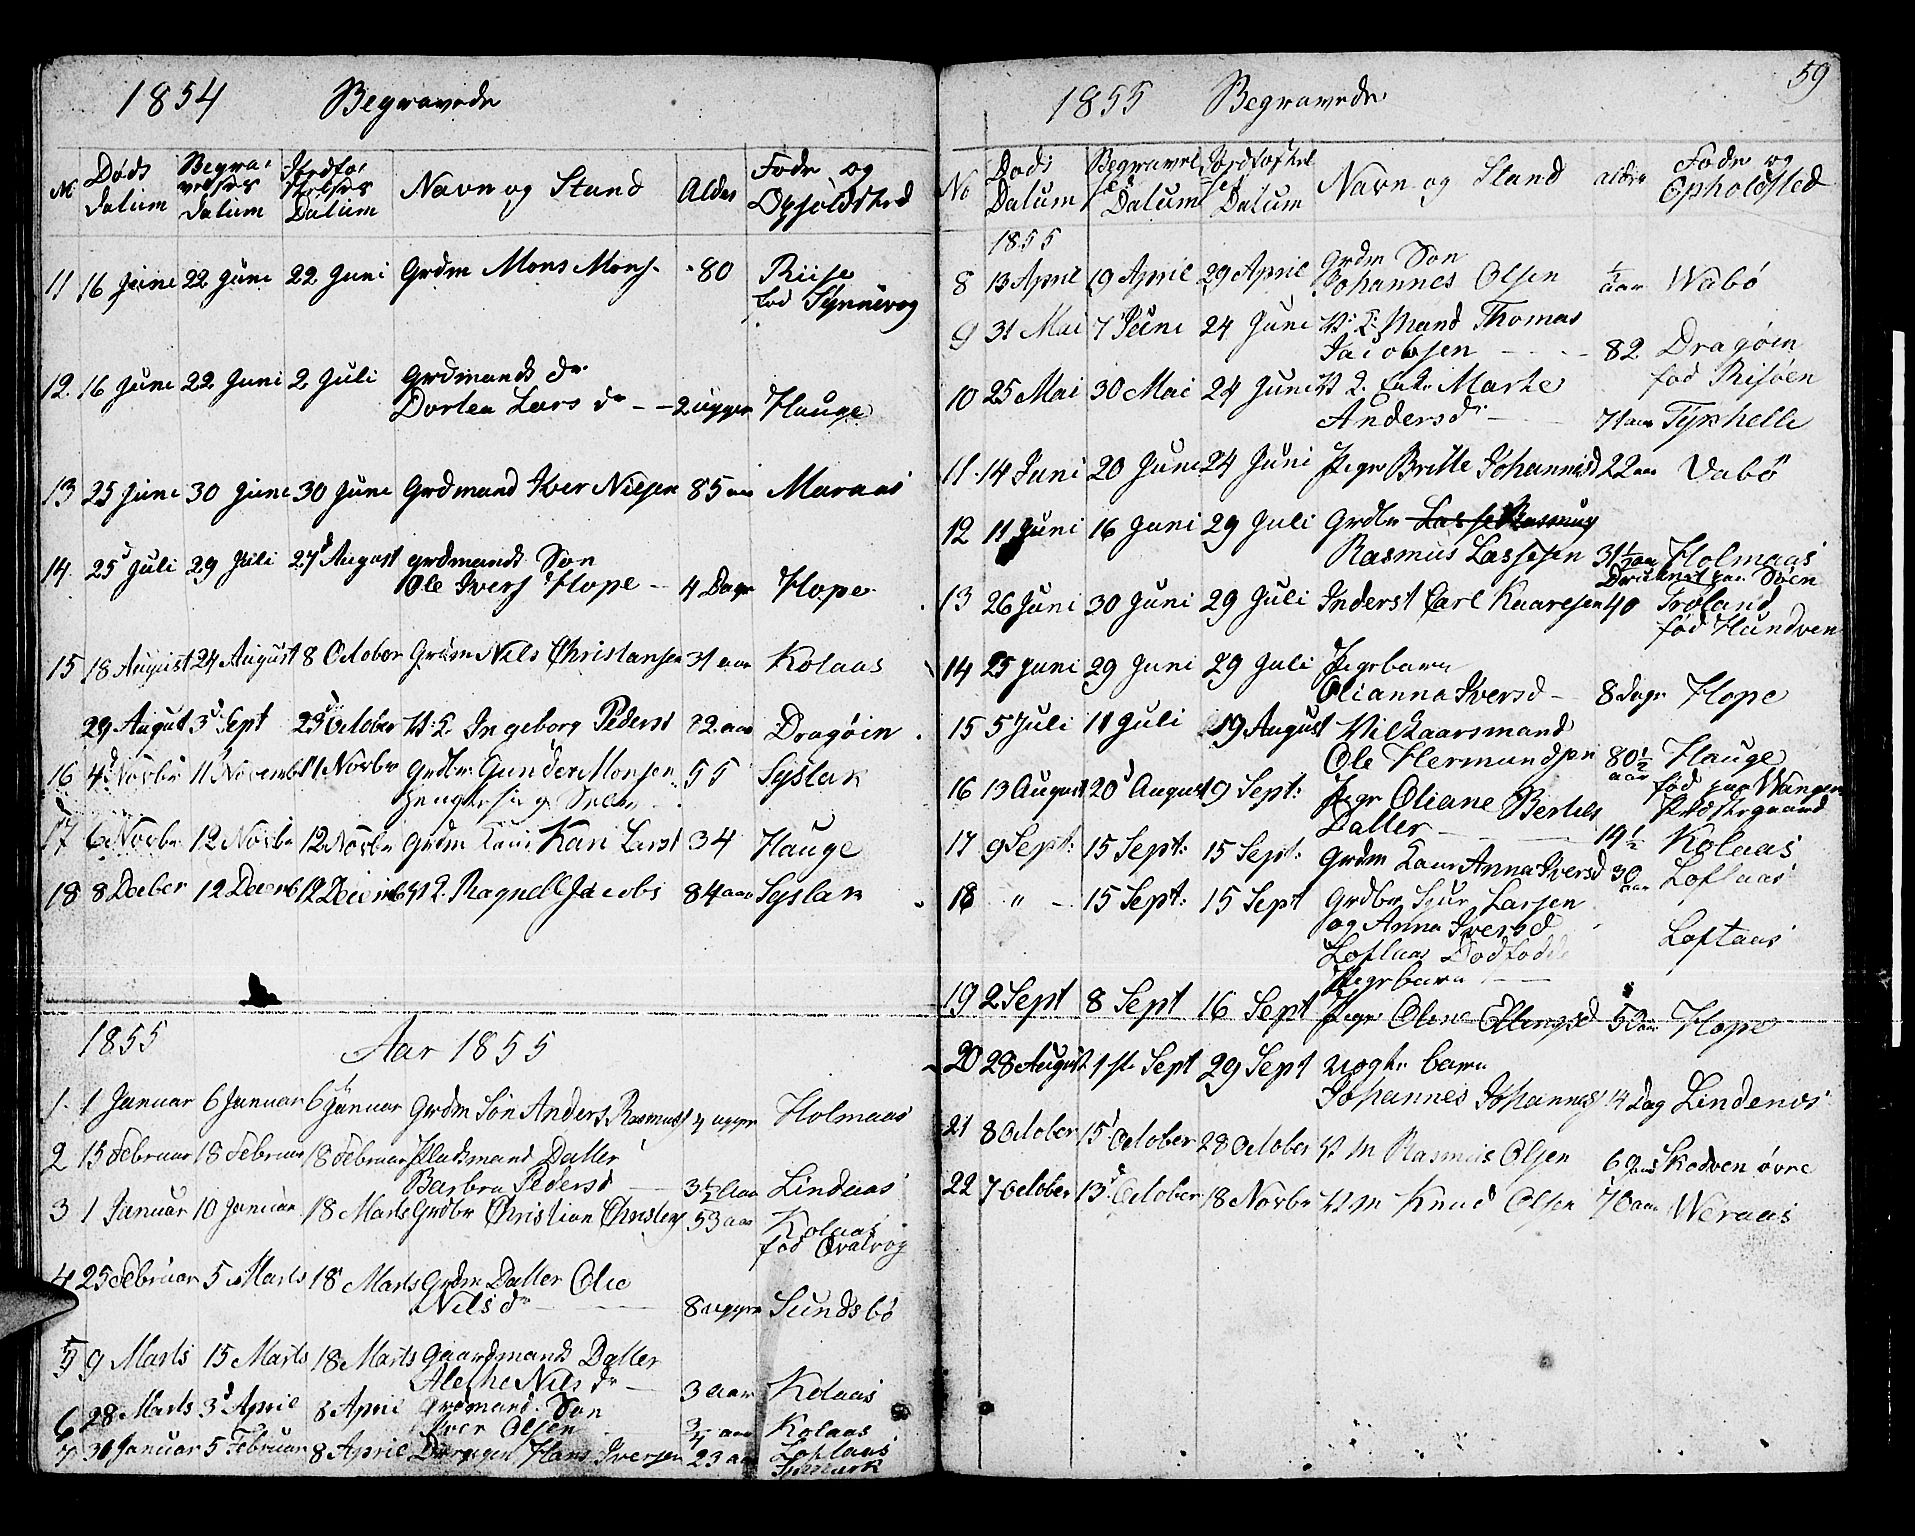 1854 Begravede
No Døds Datum Begravelses Datum Jordfæstelses Datum Navn og Stand Alder Føde og Opholdsted
11 16 Juni 22 Juni 22 Juni Grdm Mons Mons. 80 Riise
fød Synnevog
12. 16 Juni 22 Juni 2 Juli Grdmands dr
Dortea Lars dr 2 uger Hauge
13 25 Juni 30 Juni 30 Juni Grdmand Iver Nilsen 85 aar Maraas
14. 25 Juli 29 Juli 27d August grdmands Søn
Ole Ivers Hope 4 Dage Hope
15 18 August 24 August 8 October Grdm Nils Christansen 31 aar Kolaas
29 August 3d Sept October Ingeborg Pedersd 82 aar Dragøin
16 4d Novbr 11 Novemb 11 Novbr Grdbr Gunder Monsen 55 Syslak
17 6 Novbr 12 Novbr 12 Novbr Grdm Kone Kari Larsd 34 Hauge
18 8 Decber 12 Decemb 12 Decemb Ragnele Jacobs 84 aar Syslak
1855 Aar 1855
1. 1 Januar 6 Januar 6 Januar Grdm Søn Anders Rasmuss uger Holmaas
2 15 Februar 18 Februar 18 Februar Pladsmand Datter
Barbra Pedersd 3½ aar Lindaas
3 1 Januar 10 Januar 18 Marts Grdbr Christian Christens 53 aar Kolaas
fød
4 25 Februar 5 Marts 18 Marts Grdm Datter Olie
Nils dr 8 uger Sundsbø
5 9 Marts 15 Marts 18 Marts Gaardmands Datter
Alethe Nils dr 3 aar Kolaas
6 28 Marts 3d April 8 April Grdmand. Søn
Iver Olsen ¾ aar Kolaas
7 30 Januar 5 Februar 8 April Hans Iversen 23 aar Loftaas
59
1855 Begravede
No Døds Datum Begravelse Datum Jordfæstelse Datum Navn og Stand alder Føde og Opholdsted
1855
8 13 April 19 April 29 April Grdm Søn
Johannes Olsen ½ aar Wabø
9 31 Mai 7 Juni 24 Juni Mand Thomas
Jacobsen 82 Dragøin
fød Risøen
10 25 Mai 30 Mai 24 Juni Enke Marte
Andersdr 71 aar Tykhelle
11. 14 Juni 20 Juni 24 Juni Pige Britte Johannesd 22 aar Vabø
12 11 Juni 16 Juni 29 Juli Grdbr
Rasmus Lassesen 31½ aar Holmaas
Druknet paa Søen
13 26 Juni 30 Juni 29 Juli Inderst Carl Kaaresen 40 Troland
fød Hundven
14 25 Juni 29 Juni 29 Juli Pigebarn
Olianna Iversd 8 dage Hope
15 5 Juli 11 Juli 19 August Vilkaarsmand
Ole Hermundsen 80½ aar Hauge
fød paa Wangen
Præstegaard
16 13 August 20d August 9 Sept: Pige Oliane Bertels
Datter 19½ Kolaas
17 9 Sept: 15 Sept: 15 Sept: Grdm Kone Anna Iversd 30 aar Loftaas
18 " 15 Sept: 15 Sept Grdbr Sjur Larsen
og Anna Iversd
Loftaas Dødfødde
Pigebarn Loftaas
19 2 Sept 8 Sept 16 Sept Pige Oline Ellingsd 5 Hope
20 28 August 1ste Sept 29 Sept uægte barn
Johannes Johanness 14 Dag Lindenes
21 8 October 15 October 28 October Rasmus Olsen Kodven øvre
22 7 October 13d October 18 Novbr Knud Olsen 70 aar Weraas